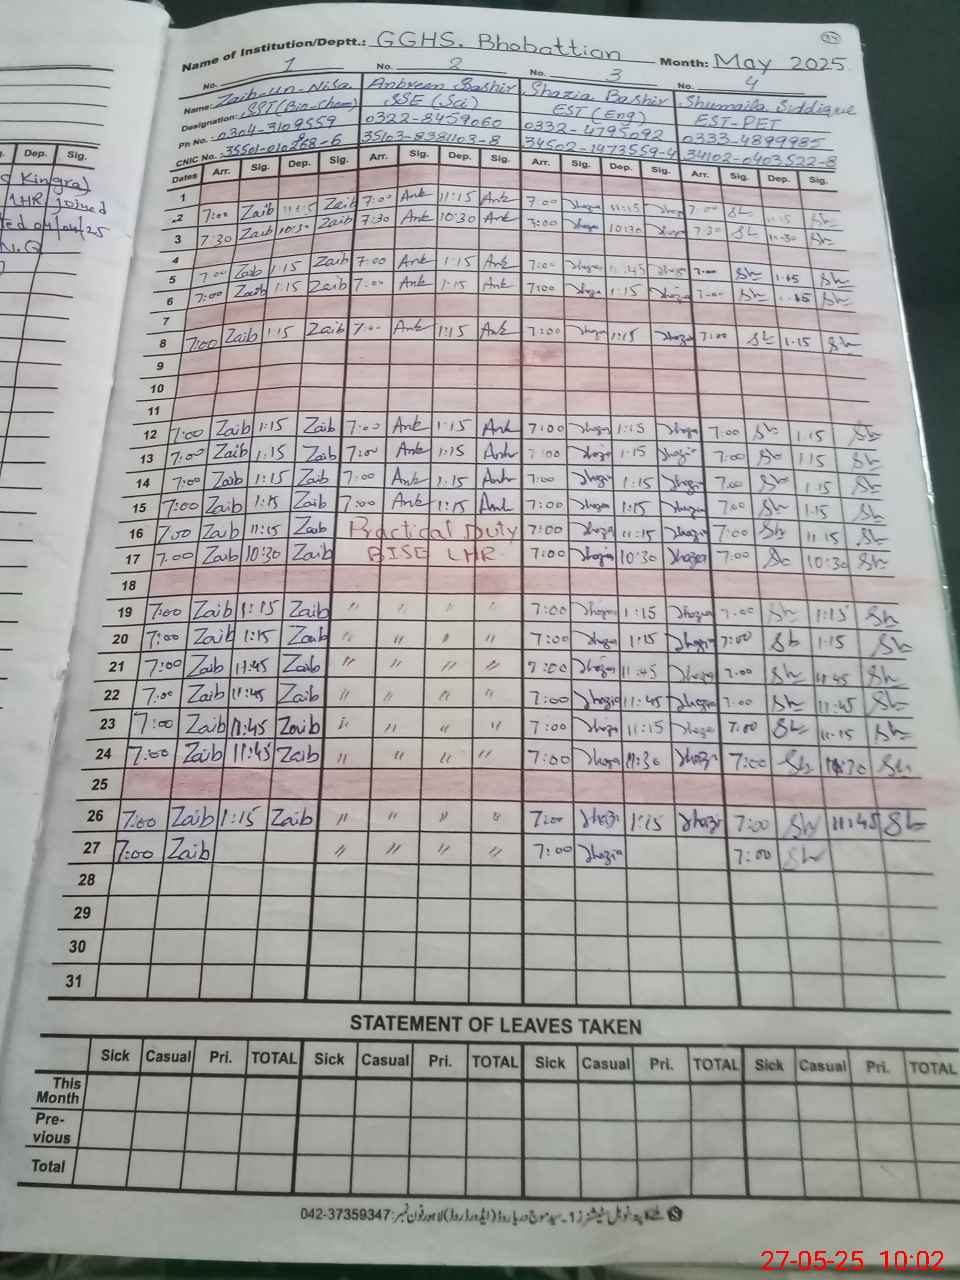 24
Name of Institution/Deptt.: GGHS. Bhobattian Month: May 2025
No. 1 No. 2 No. 3 No. 4
Name: Zaib-un-Nisa Anbreen Bashir Shazia Bashir Shumaila Siddique
Designation: SST(Bio-chem) SSE (Sci) EST (Eng) EST-PET
Ph No.: 0304-3109559 0322-8459060 0332-4795092 0333-4899985
CNIC No.: 35103-8381103-8 34502-1473559-4 34102-0403522-8
Dates Arr. Sig. Dep. Sig. Arr. Sig. Dep. Sig. Arr. Sig. Dep. Sig. Arr. Sig. Dep. Sig.
1
2 7:00 Zaib 11:15 Zaib 7:00 Ank 11:15 Ank 7:00 Shazia 11:15 Shazia 7:00 Sh 11:15 Sh
3 7:30 Zaib 10:30 Zaib 7:30 Ank 10:30 Ank 7:00 Shazia 10:30 Shazia 7:30 Sh 10:30 Sh
4
5 7:00 Zaib 1:15 Zaib 7:00 Ank 1:15 Ank 7:00 Shazia Shazia 7:00 Sh 1:45 Sh
6 7:00 Zaib 1:15 Zaib 7:00 Ank 1:15 Ank 7:00 Shazia 1:15 Shazia 7:00 Sh Sh
7
8 7:00 Zaib 1:15 Zaib 7:00 Ank 1:15 Ank 7:00 Shazia 1:15 Shazia 7:00 Sh 1:15 Sh
9
10
11
12 7:00 Zaib 1:15 Zaib 7:00 Ank 1:15 Ank 7:00 Shazia 1:15 Shazia 7:00 Sh 1:15 Sh
13 7:00 Zaib 1:15 Zaib 7:00 Ank 1:15 Ank 7:00 Shazia 1:15 Shazia 7:00 Sh 1:15 Sh
14 7:00 Zaib 1:15 Zaib 7:00 Ank 1:15 Ank 7:00 Shazia 1:15 Shazia 7:00 Sh 1:15 Sh
15 7:00 Zaib 1:15 Zaib 7:00 Ank 1:15 Ank 7:00 Shazia 1:15 Shazia 7:00 Sh 1:15 Sh
16 7:00 Zaib 11:15 Zaib Practical Duty 7:00 Shazia 11:15 Shazia 7:00 Sh 11:15 Sh
17 7:00 Zaib 10:30 Zaib BISE LHR 7:00 Shazia 10:30 Shazia 7:00 Sh 10:30 Sh
18
19 7:00 Zaib 1:15 Zaib " " " " 7:00 Shazia 1:15 Shazia 7:00 Sh 1:15 Sh
20 7:00 Zaib 1:15 Zaib " " " " 7:00 Shazia 1:15 Shazia 7:00 Sh 1:15 Sh
21 7:00 Zaib 11:45 Zaib " " " " 7:00 Shazia 11:45 Shazia 7:00 Sh 11:45 Sh
22 7:00 Zaib 11:45 Zaib " " " " 7:00 Shazia 11:45 Shazia 7:00 Sh 11:45 Sh
23 7:00 Zaib 11:45 Zaib " " " " 7:00 Shazia 11:15 Shazia 7:00 Sh 11:15 Sh
24 7:00 Zaib 11:45 Zaib " " " " 7:00 Shazia 11:30 Shazia 7:00 Sh Sh
25
26 7:00 Zaib 1:15 Zaib " " " " 7:00 Shazia 1:15 Shazia 7:00 Sh 11:45 Sh
27 7:00 Zaib " " " " 7:00 Shazia 7:00 Sh
28
29
30
31
STATEMENT OF LEAVES TAKEN
Sick Casual Pri. TOTAL Sick Casual Pri. TOTAL Sick Casual Pri. TOTAL Sick Casual Pri. TOTAL
This Month
Pre-vious
Total
042-37359347
Dep. Sig.
Kingra)
LHR joined
04/04/25
27-05-25 10:02